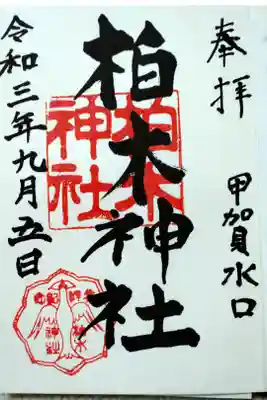 奉拝
甲加賀水口
柏木神社
柏木
神社
令和三年九月五日